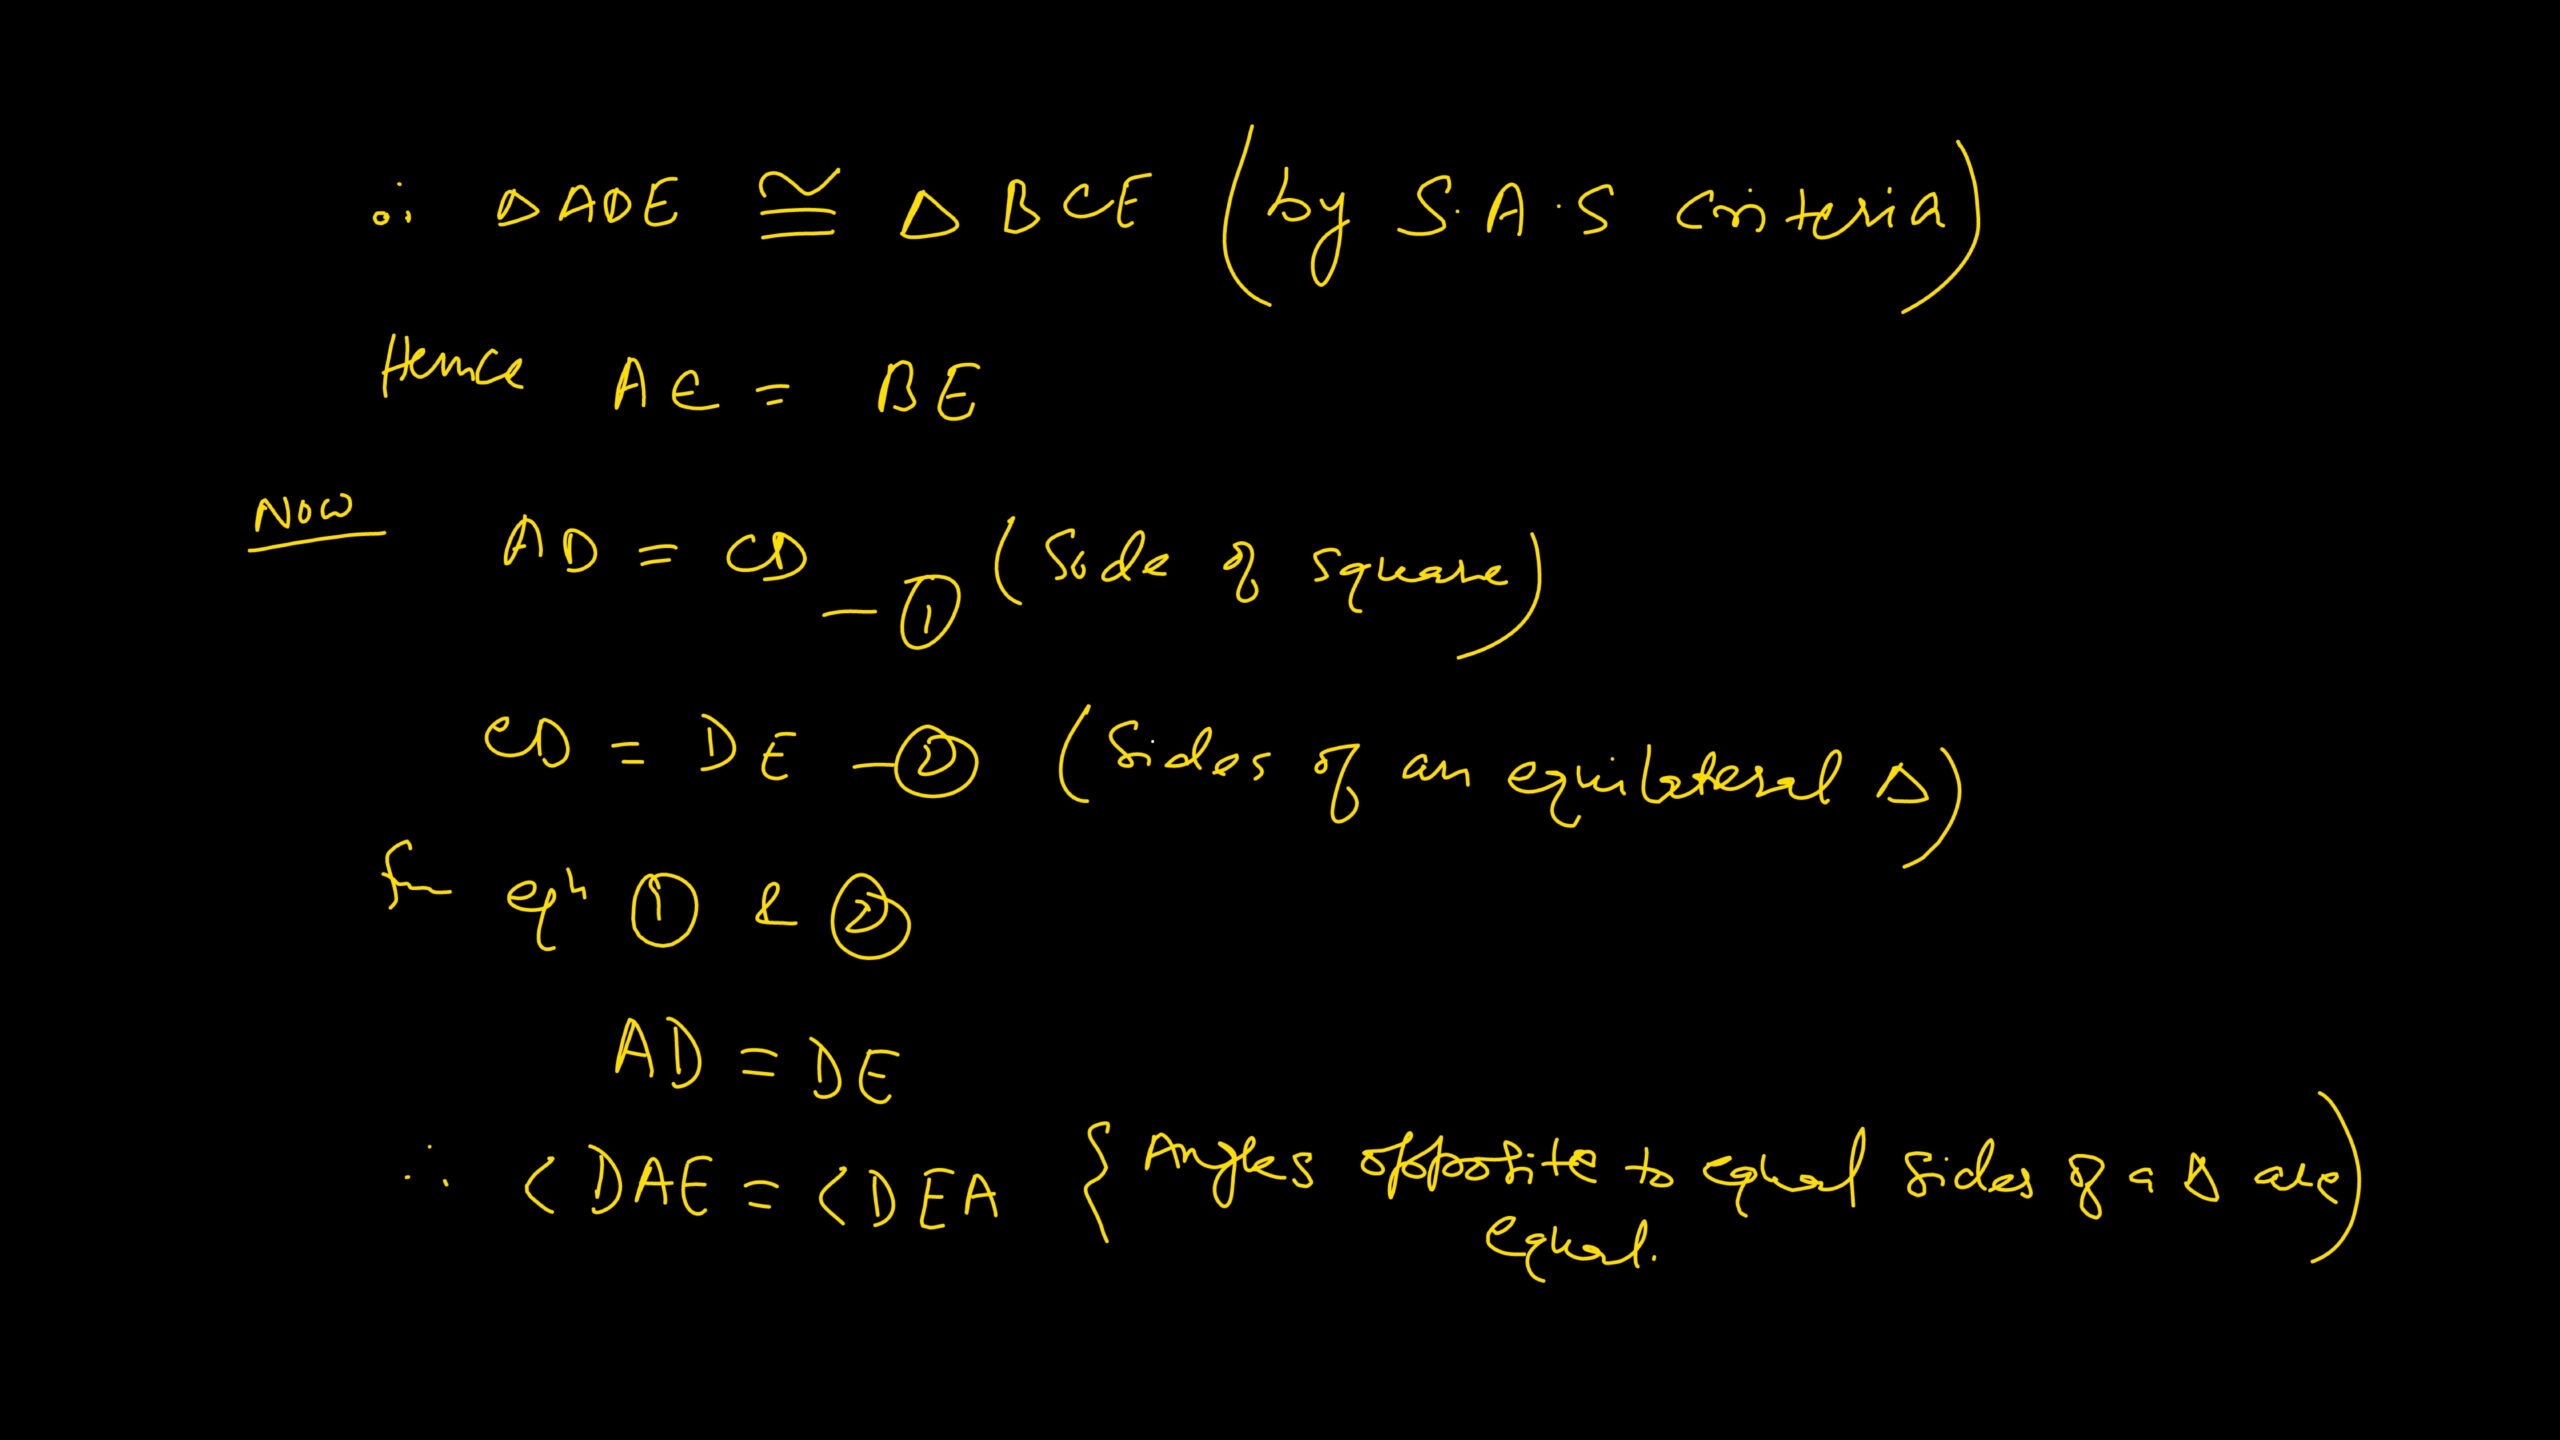 ∴ △ADE ≅ △BCE (by S.A.S criteria)
Hence AE = BE
Now AD = CD —① (Side of square)
CD = DE —② (Sides of an equilateral △)
fm eqn ① & ②
AD = DE
∴ <DAE = <DEA {Angles opposite to equal sides of a △ are
equal.)